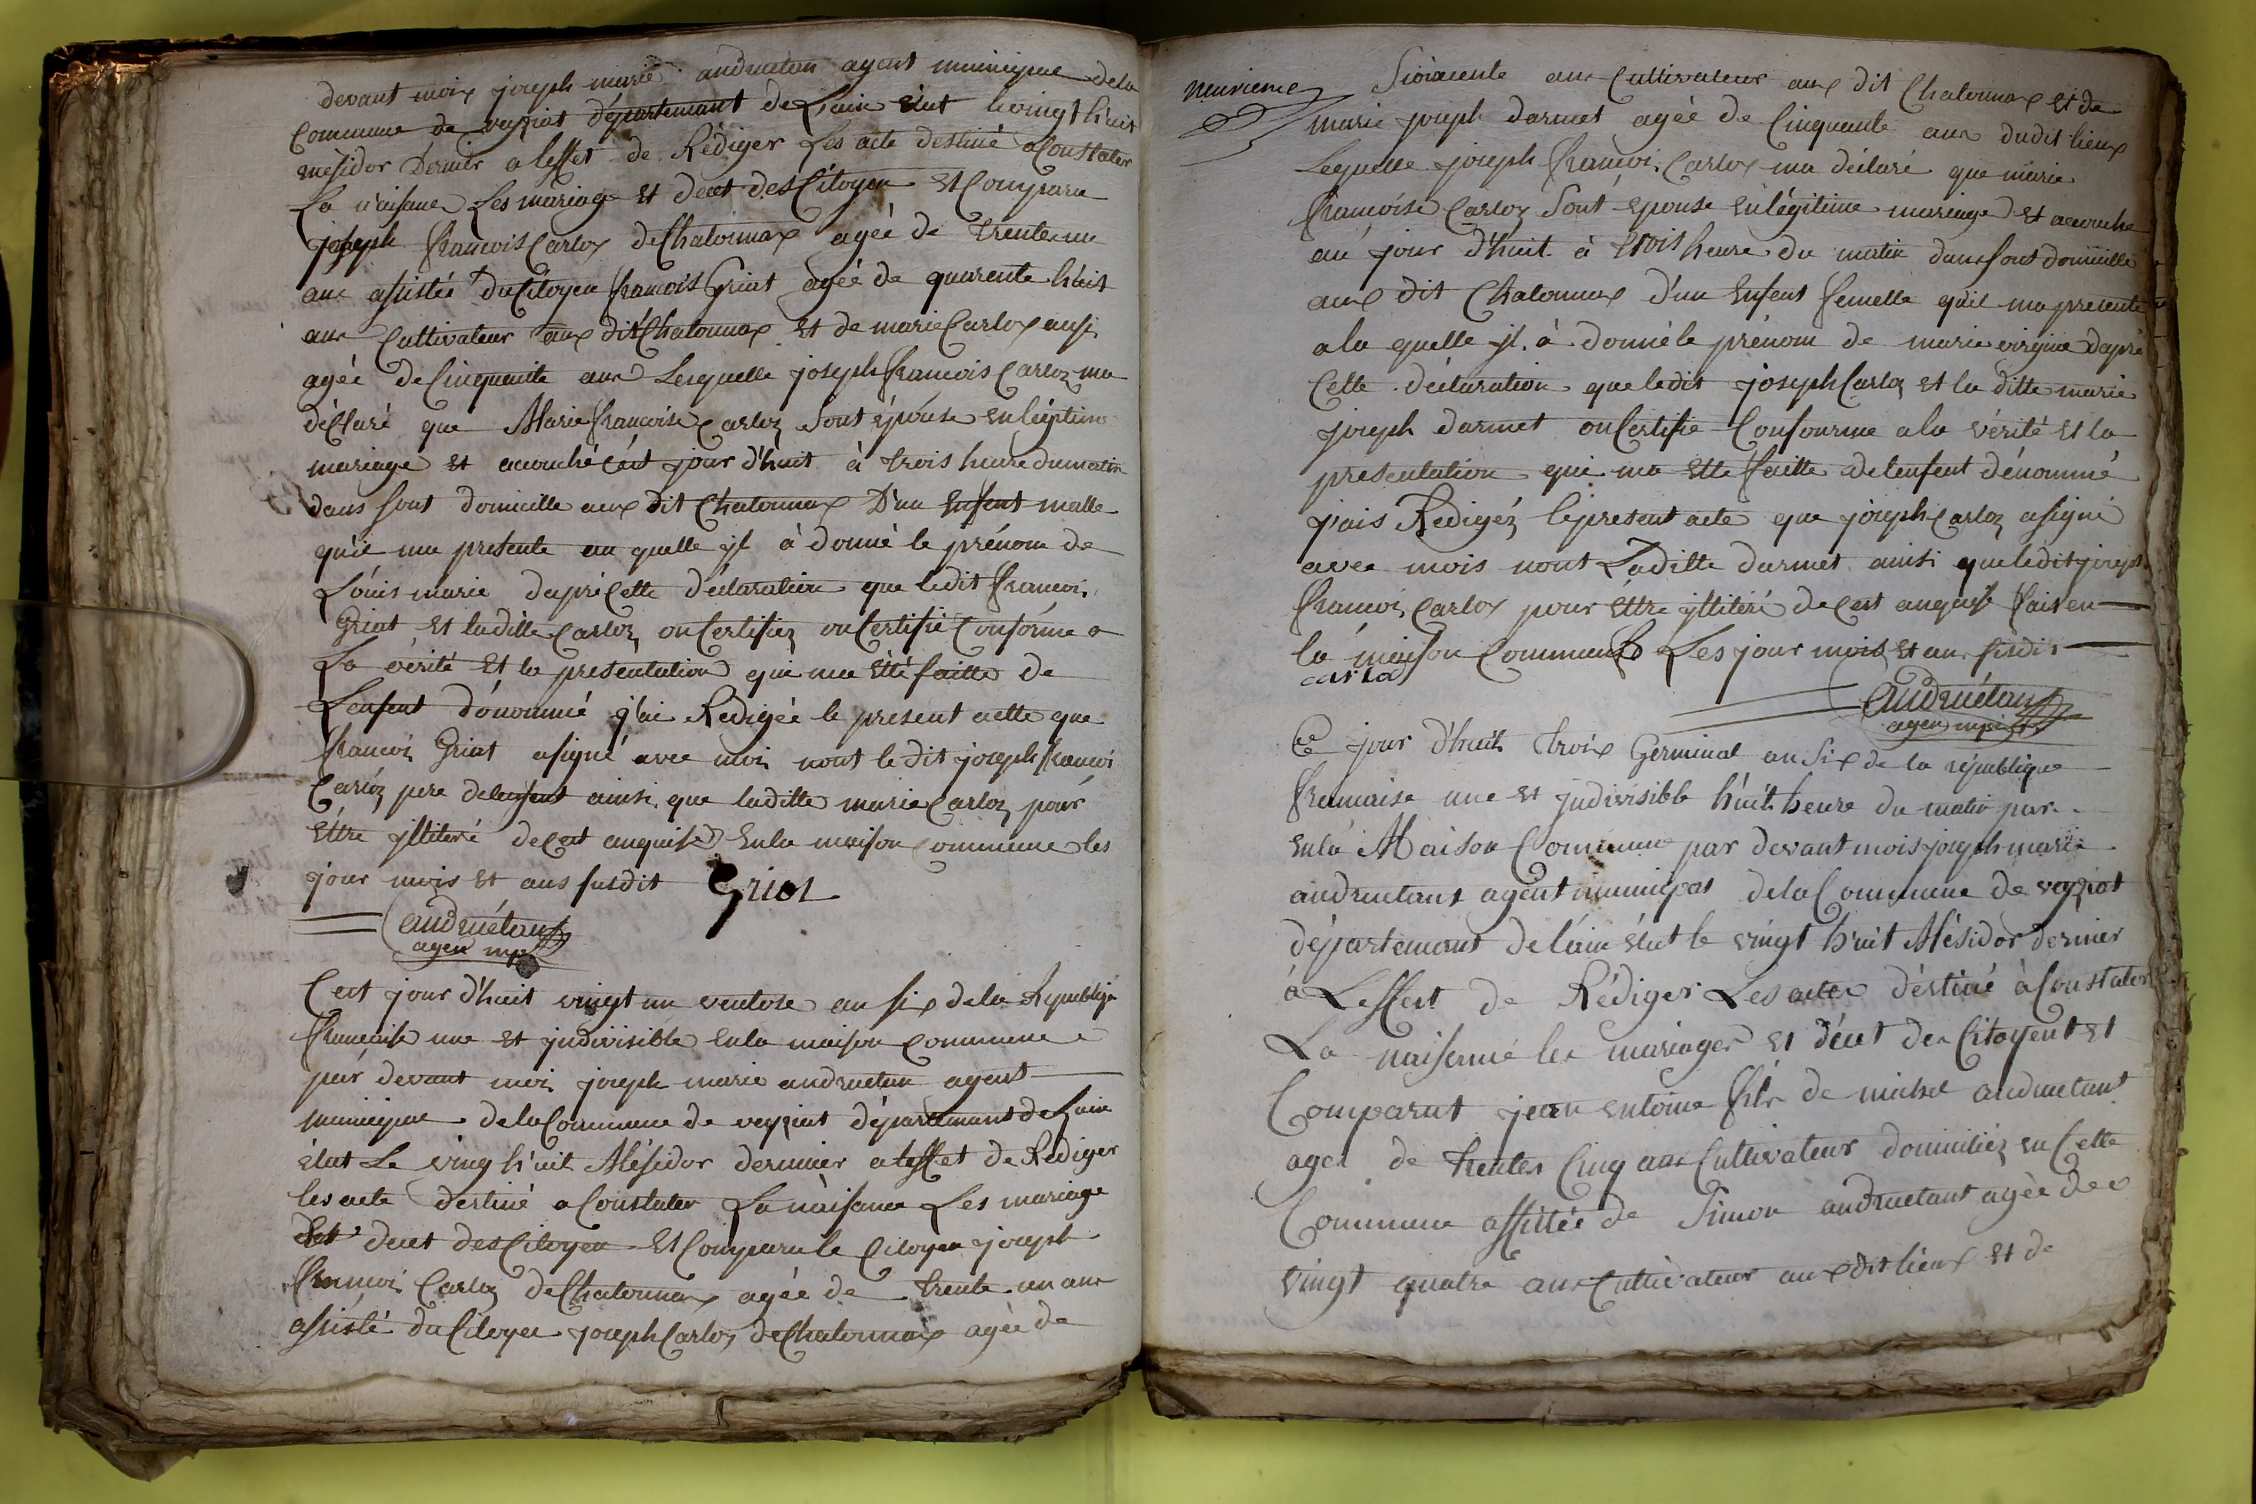 devant moix joseph marie andruetan agent municipae dela
Commune de veyziat départemant de L'ain élut le vingt huit
mésidor Dernier a leffet de Rédiger Les acte destiné a Constater
La n'aisance Les mariage et decet des Citoyen et Comparu
joseph francois Carlox de Chatonnax agéé de trente un
ans assistéé du Citoyen francois Griot agéé de quarente h'uit
ans Cultivateur aux dit Chatonnax et de marie Carlox ausi
agéé de Cinquente ans Lesquelle joseph francois Carloz ma
déClaré que Marie francoise Carloz Sont épouse en légitime
mariage et acouché C'ést jour d'huit à trois heure dumatin
dans sont domicille aux dit Chatonnax D'un Enfent malle
qu'ie ma presente au quelle jl à donné le prénom de
Loüis marie dapré Cette déclaration que ledit francoi
Griot et ladille Carloz on Certifiez on Certifié Conforme a
La vérité Et la presentation qui ma Été faitte de
Lenfent dénommé j'ai Redigéé le present actte que
francoi Griot asigné avec moi nont le dit joseph francoi
Carloz pere delenfent ainsi que laditte marie Carloz pour
Ettre jlliteré de Cest enquise En la maison Commune les
jour mois et ans susdit Griot
andruétan
agen mpl
Cest jour d'huit vingt un ventose an six dela République
francaise une et jndivisible en la maison commune
par devant moi joseph marie andruetan agent
municipae dela Commune de veyziat départemant de Lain
élut Le ving h'uit Mésidor dernnier a leffet de Rédiger
les acte destiné a Constater La nàisance Les mariage
Et decet des Citoyen Et Comparu le Citoyen joseph
francoi Carloz de Chatonnax agéé de trente un ans
assisté du Citoyen joseph Carloz de Chatonnax agéé de
neuvieme
Soixente ans Cultivateur aux dit Chatonnax et de
marie joseph darmet agéé de Cinquente ans dudit lieux
Lequelle joseph francoi Carlox ma déclaré que marie
francoise Carloz Sont epouse en légitime mariage et acouche
au jour d'huit à trois heure du matin dans sont domicille
aux dit Chatonnax d'un Enfent femelle quil ma presenté
a la quelle jl à donné le prénom de marie virginie dapré
Cette déclaration que ledit joseph Carloz et la ditte marie
joseph darmet on Certifie Confourme a la vérité et la
presentation qui ma Ette faitte de lenfent dénommé
j'ais Redigéz le present acte que joseph Carloz asigné
avec mois nont Laditte darmet ainsi que ledit joseph
francoi Carlox pour Ettre jlliteré de Cest enquise fait en
la maison Commune Les jour mois et an susdit
carloz
andruétan
agen mpl
Ce jour d'huit troix Germinal an Six de la république
francaise une et jndivisible h'uit heure du matin par
en la Maison Commune par devant mois joseph marie
andruetant agent municipal dela Commune de veyziat
départemant de l'ain élut le vingt h'uit Mésidor dernier
à Leffert de Rédiger Les acte déstiné à Constater
La naisance les mariages et décet des Citoyent et
Comparut jean entoine fils de michel andruetant
ages de trentes Cinq ans Cultivateur domiciliéz en Cette
Commune assistée de Simon andruetant agéé de
vingt quatre ans Cultivateur aux dit lieux et de